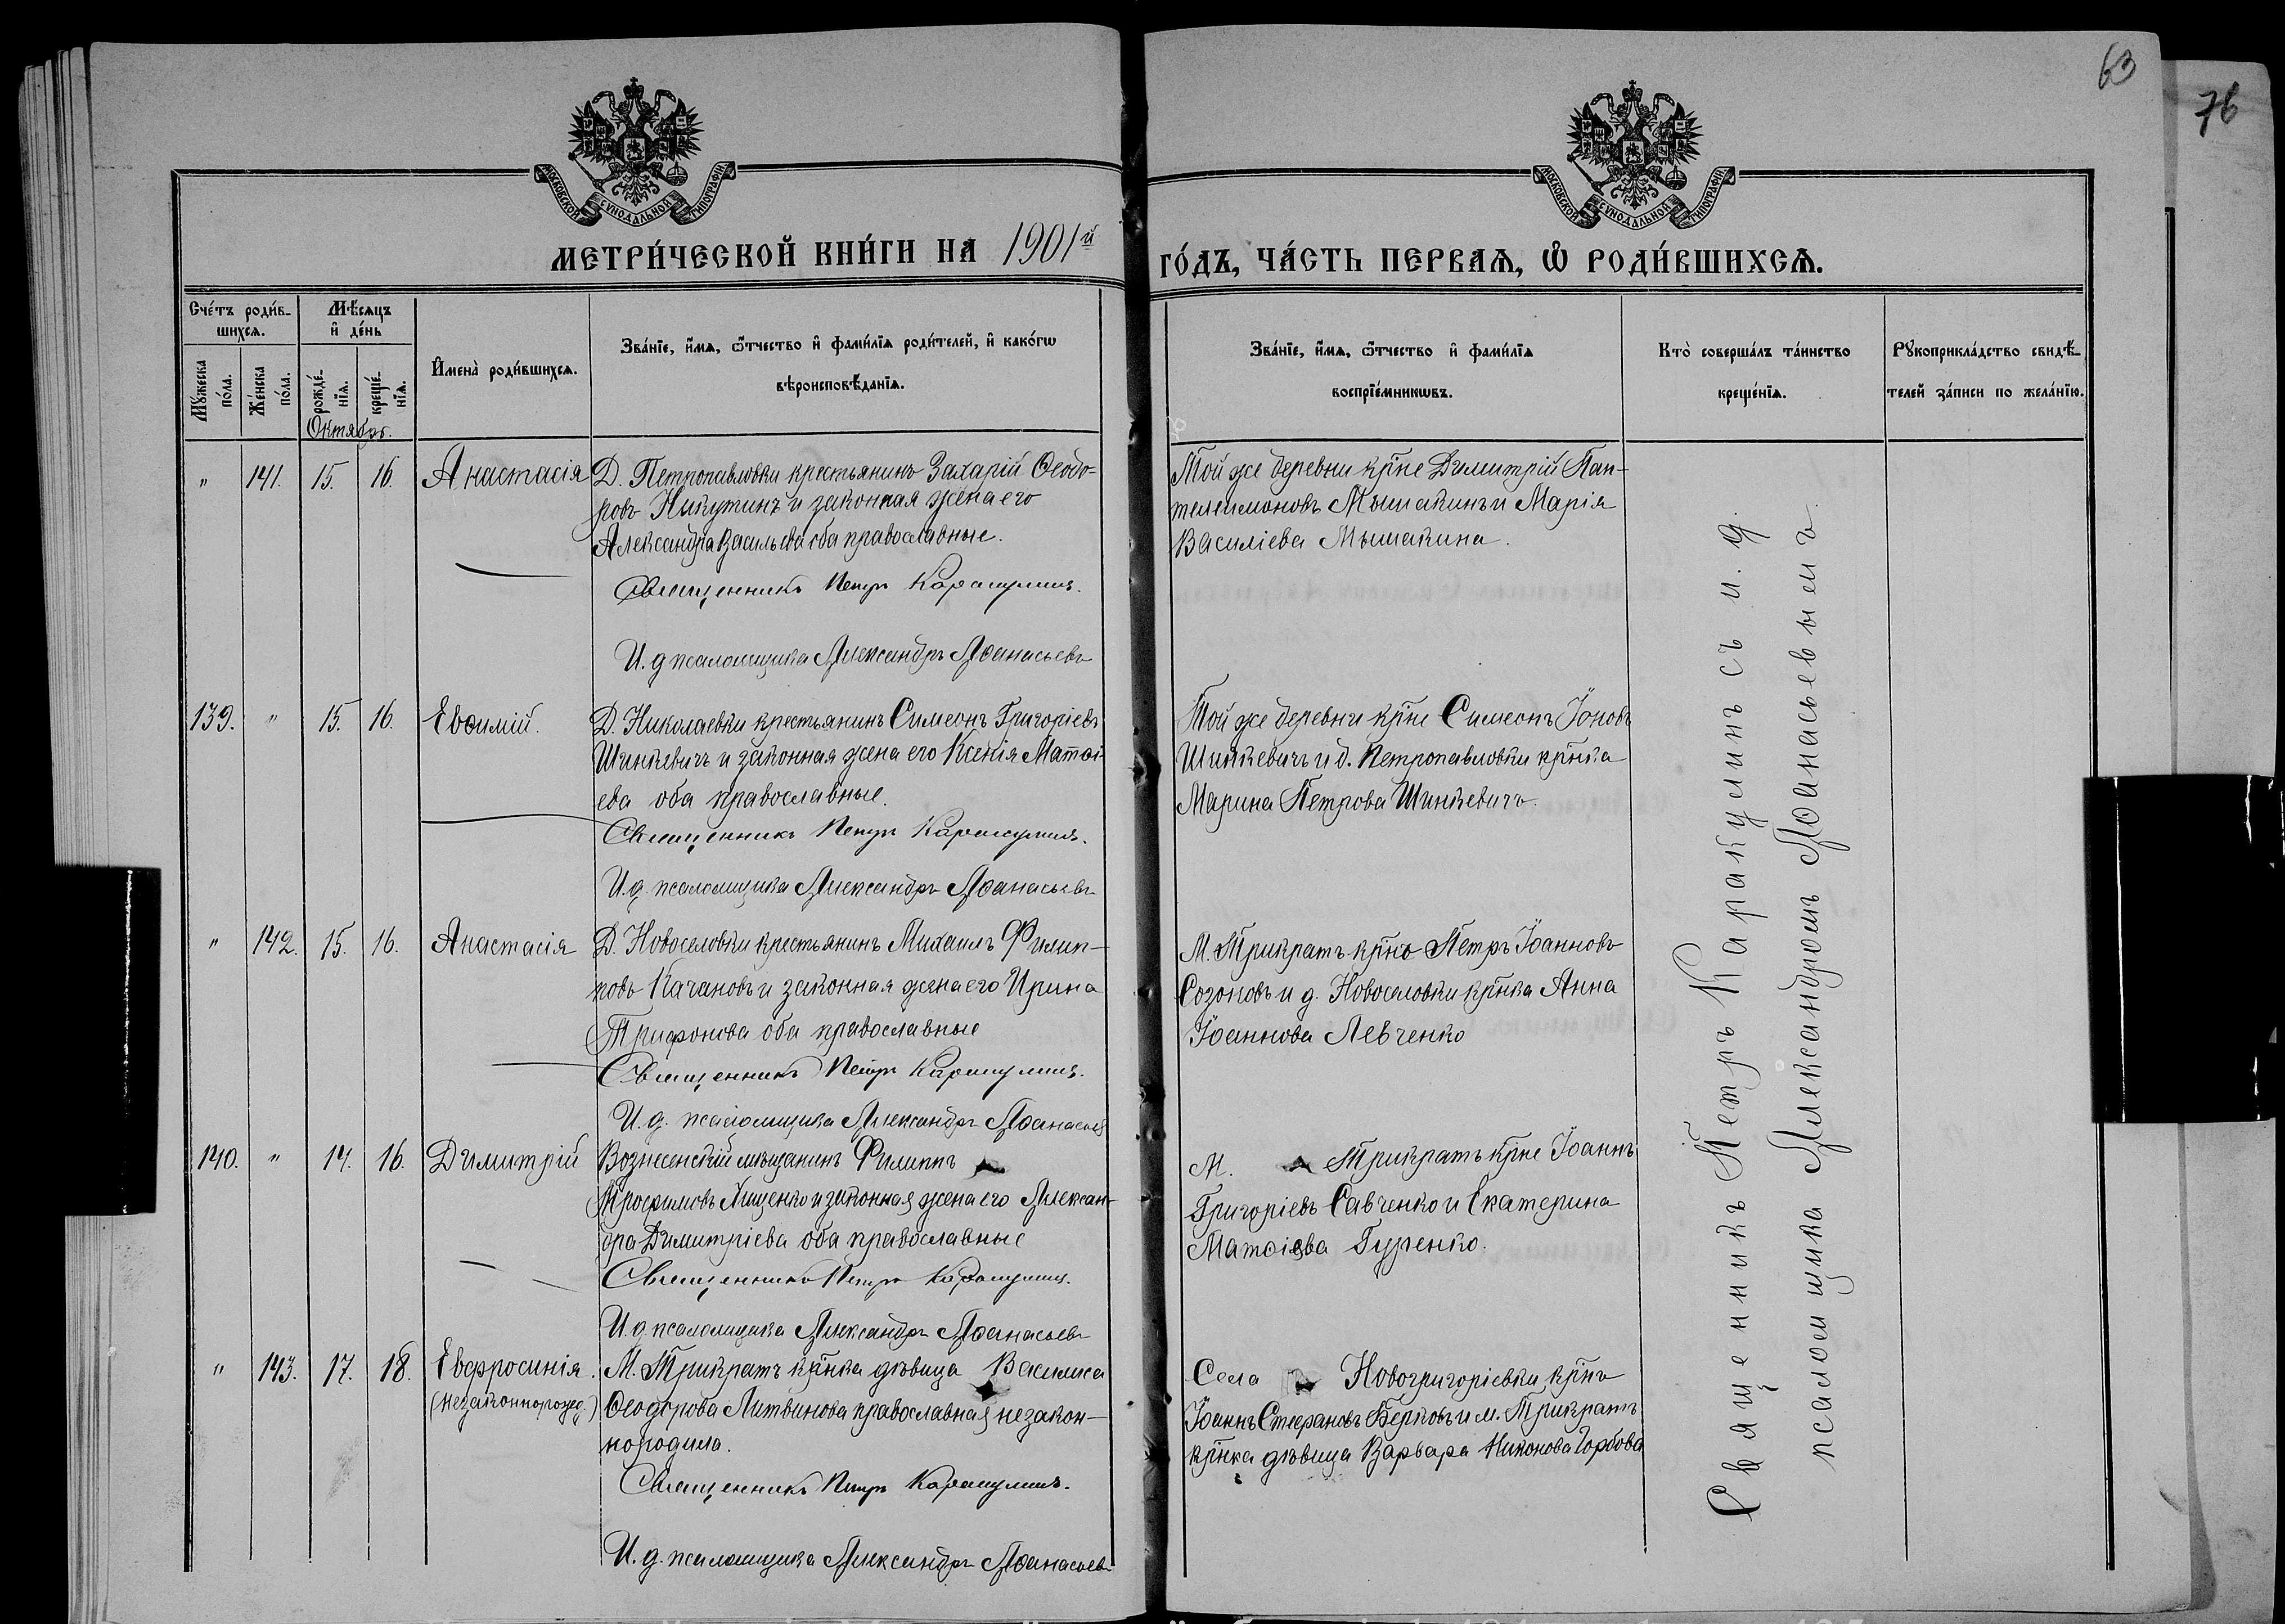 63
76
МОСКОВСКОЙ СѴНОДАЛЬНОЙ ТИПОГРАФІИ
МОСКОВСКОЙ СѴНОДАЛЬНОЙ ТИПОГРАФІИ
МЕТРИ́ЧЕСКОЙ КНИ́ГИ НА 1901й
ГО́ДЪ, ЧА́СТЬ ПЕРВАѦ, Ѽ РОДИ́ВШИХСѦ.
Сче́тъ роди́в-
шихсѧ.
Мꙋ́жеска
по́ла.
Же́нска
по́ла.
Мѣ́сѧцъ
и҆ де́нь
рожде́-
нїѧ.
креще́-
нїѧ.
Октябрь.
И҆мена̀ роди́вшихсѧ.
Зва́нїе, и҆́мѧ, ѻ҆́тчество и҆ фами́лїѧ роди́телей, и҆ како́гѡ
вѣроисповѣ́данїѧ.
Зва́нїе, и҆́мѧ, ѻ҆́тчество и҆ фами́лїѧ
воспрїе́мникѡвъ.
Кто̀ соверша́лъ та́инство
креще́нїѧ.
Рꙋкоприкла́дство свидѣ́-
телей за́писи по жела́нїю.
" 141. 15. 16. Анастасія
Д. Петропавловки крестьянинъ Захарій Ѳеодо-
ровъ Никутинъ и законная жена его
Александра Васильева оба православные.
Священникъ Петръ Каракулинъ.
И. д. псаломщика Александръ Аѳанасьевъ
Той же деревни кр̃не Димитрій Пан-
телеимоновъ Мышакинъ и Марія
Василіева Мышакина.
139. " 15. 16. Евѳимій.
Д. Николаевки крестьянинъ Симеонъ Григоріевъ
Шинкевичъ и законная жена его Ксенія Матѳі-
ева оба православные.
Священникъ Петръ Каракулинъ.
И. д. псаломщика Александръ Аѳанасьевъ
Той же деревни кр̃не Симеонъ Іоновъ
Шинкевичъ и д. Петропавловки кр̃нка
Марина Петрова Шинкевичъ.
" 142. 15. 16. Анастасія
Д. Новоселовки крестьянинъ Михаилъ Филип-
повъ Качановъ и законная жена его Ирина
Трифонова оба православные
Священникъ Петръ Каракулинъ.
И. д. псаломщика Александръ Аѳанасьев
М. Трикратъ кр̃нъ Петръ Іоанновъ
Созоновъ и д. Новоселовки кр̃нка Анна
Іоаннова Левченко
140. " 14. 16. Димитрій
Вознесенскій мѣщанинъ Филиппъ
Трофимовъ Лищенко и законная жена его Алексан-
дра Димитріева оба православные
Священникъ Петръ Каракулинъ.
И. д. псаломщика Александръ Аѳанасьевъ
М. Трикратъ кр̃не Іоаннъ
Григоріевъ Савченко и Екатерина
Матѳіева Гуренко.
" 143. 17. 18. Евфросинія.
(незаконнорожд.)
М. Трикратъ кр̃нка дѣвица Василиса
Ѳеодорова Литвинова православная незакон-
но родила.
Священникъ Петръ Каракулинъ.
И. д. псаломщика Александръ Аѳанасьевъ
Села Новогригоріевки кр̃нъ
Іоаннъ Стефановъ Берковъ и м. Трикратъ
кр̃нка дѣвица Варвара Никонова Горбова
Священникъ Петръ Каракулинъ съ и. д.
псаломщика Александромъ Аѳанасьевымъ.